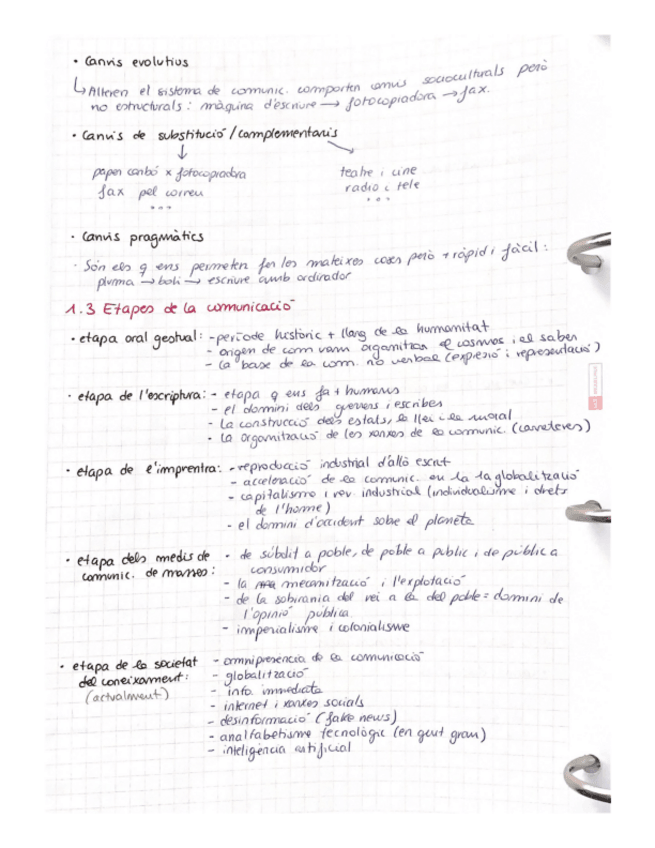 • Canvis evolutius
↳ Alteren el sistema de comunic. comporten canvis socioculturals però
no estructurals: màquina d'escriure → fotocopiadora → fax.
• Canvis de substitució/complementaris
paper carbó x fotocopiadora
fax pel correu
...
teatre i cine
radio i tele
...
• Canvis pragmàtics
· Són els q ens permeten fer les mateixes coses però + ràpid i fàcil:
ploma → boli → escriure amb ordinador
1.3 Etapes de la comunicació
• etapa oral gestual: - període històric + llarg de la humanitat
- origen de com vam organitzar el cosmos i el saber
- la base de la com. no verbal (expresió i representació)
• etapa de l'escriptura: - etapa q ens fa + humans
- el domini dels guerrers i escribes
- la construcció dels estats, la llei i la moral
- la organització de les xarxes de la comunic. (carreteres)
• etapa de l'imprenta: - reproducció industrial d'allò escrit
- acceleració de la comunic. en la 1a globalització
- capitalisme i rev. industrial (individualisme i drets
de l'home)
- el domini d'occident sobre el planeta
• etapa dels medis de
comunic. de masses:
- de súbdit a poble, de poble a públic i de públic a
consumidor
- la mecanització i l'explotació
- de la sobirania del rei a la del poble = domini de
l'opinió pública
- imperialisme i colonialisme
• etapa de la societat
del coneixament:
(actualment)
- omnipresència de la comunicació
- globalització
- info immediata
- internet i xarxes socials
- desinformació (fake news)
- analfabetisme tecnològic (en gent gran)
- inteligència artificial